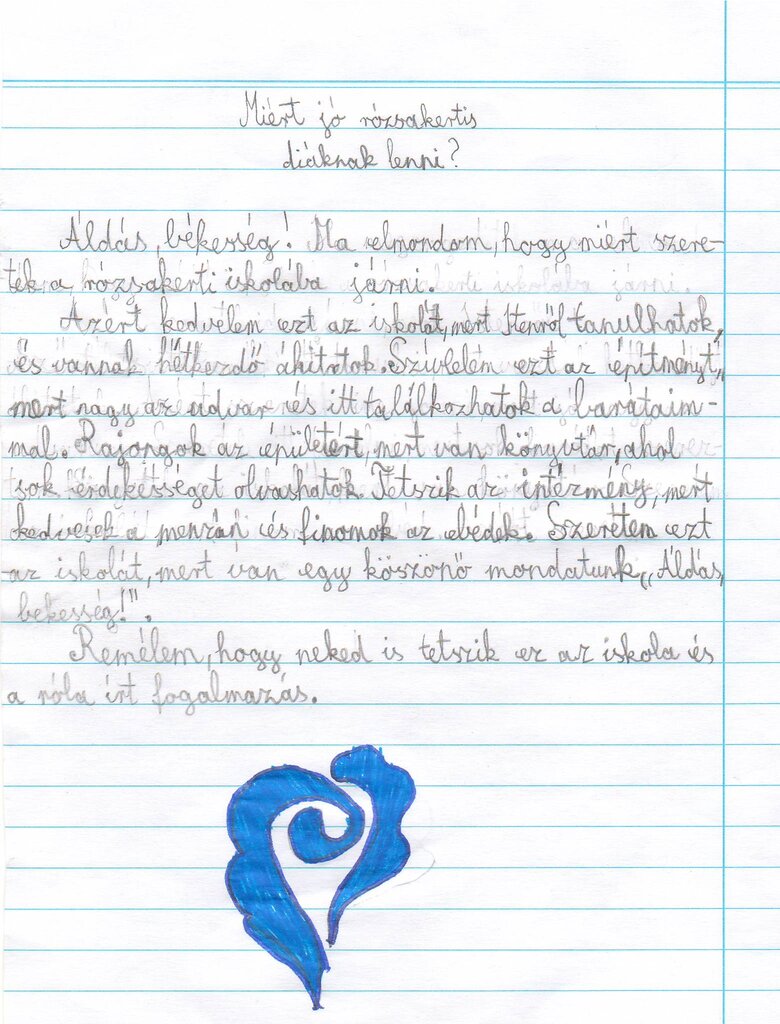 Miért jó rózsakertis
diáknak lenni?
Áldás, békesség! Ma elmondom, hogy miért szere-
tek a rózsakerti iskolába járni.
Azért kedvelem ezt az iskolát, mert Istenről tanulhatok,
és vannak hétkezdő áhítatok. Szívlelem ezt az építményt,
mert nagy az udvar és itt találkozhatok a barátaim-
mal. Rajongok az épületért, mert van könyvtár, ahol
sok érdekességet olvashatok. Tetszik az intézmény, mert
kedvesek a menzán és finomok az ebédek. Szeretem ezt
az iskolát, mert van egy köszönő mondatunk, „Áldás,
békesség!".
Remélem, hogy neked is tetszik ez az iskola és
a róla írt fogalmazás.